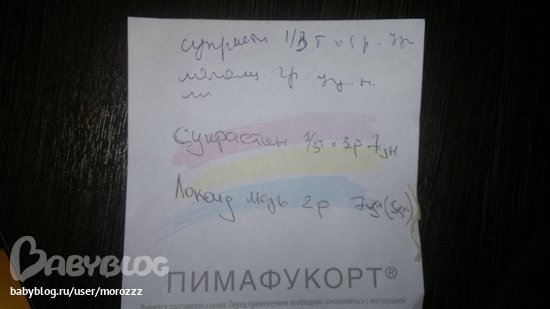 супрасти 1/3 т х
2р.
Супрастин 1/5 х 3р 7дн
Локоид мазь 2р 7дн (5дн)
BABYBLOG
ПИМАФУКОРТ®
babyblog.ru/user/morozzz
Имеются противопоказания. Перед применением необходимо ознакомиться с инструкцией